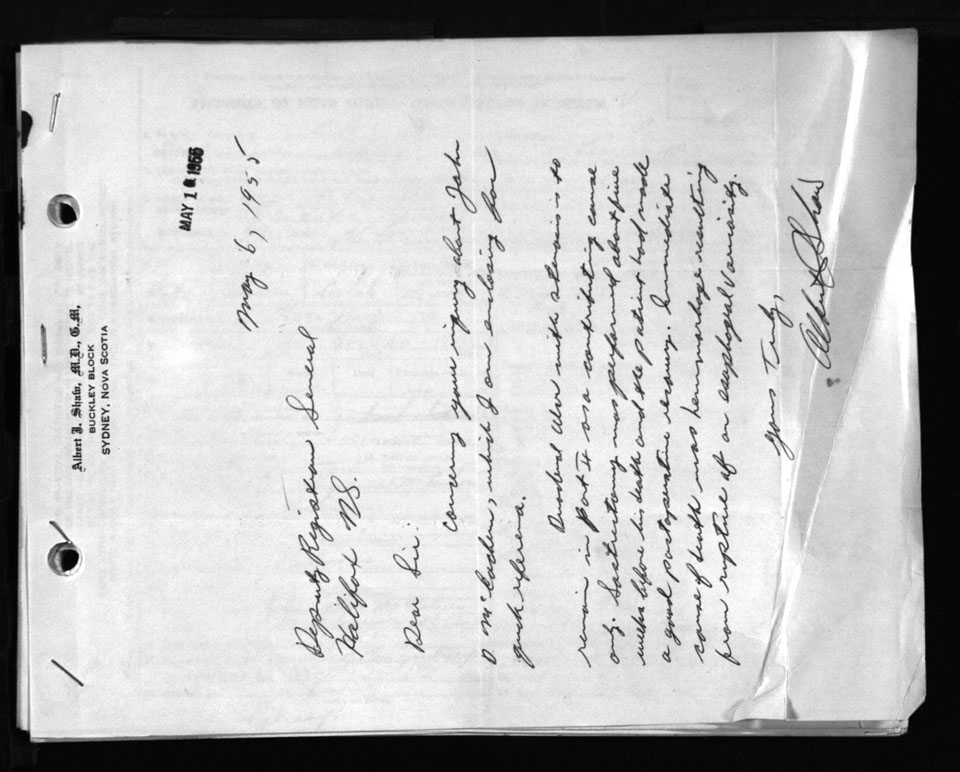 Albert J. Shaw, M.D., C.M.
BUCKLEY BLOCK
SYDNEY, NOVA SCOTIA
MAY 10 1955
May 6, 1955
Deputy Registrar General
Halifax N.S.
Dear Sir:
Concerning your inquiry about John
D McEachern, which I am enclosing for
quick reference.
Duodenal ulcer with stenosis to
remain in part II as a contributing cause
only. Gastrectomy was performed about five
weeks before his death and the patient had made
a good postoperative recovery. Immediate
cause of death was hemorrhage resulting
from rupture of an esophageal varicosity.
Yours Truly,
Albert J Shaw